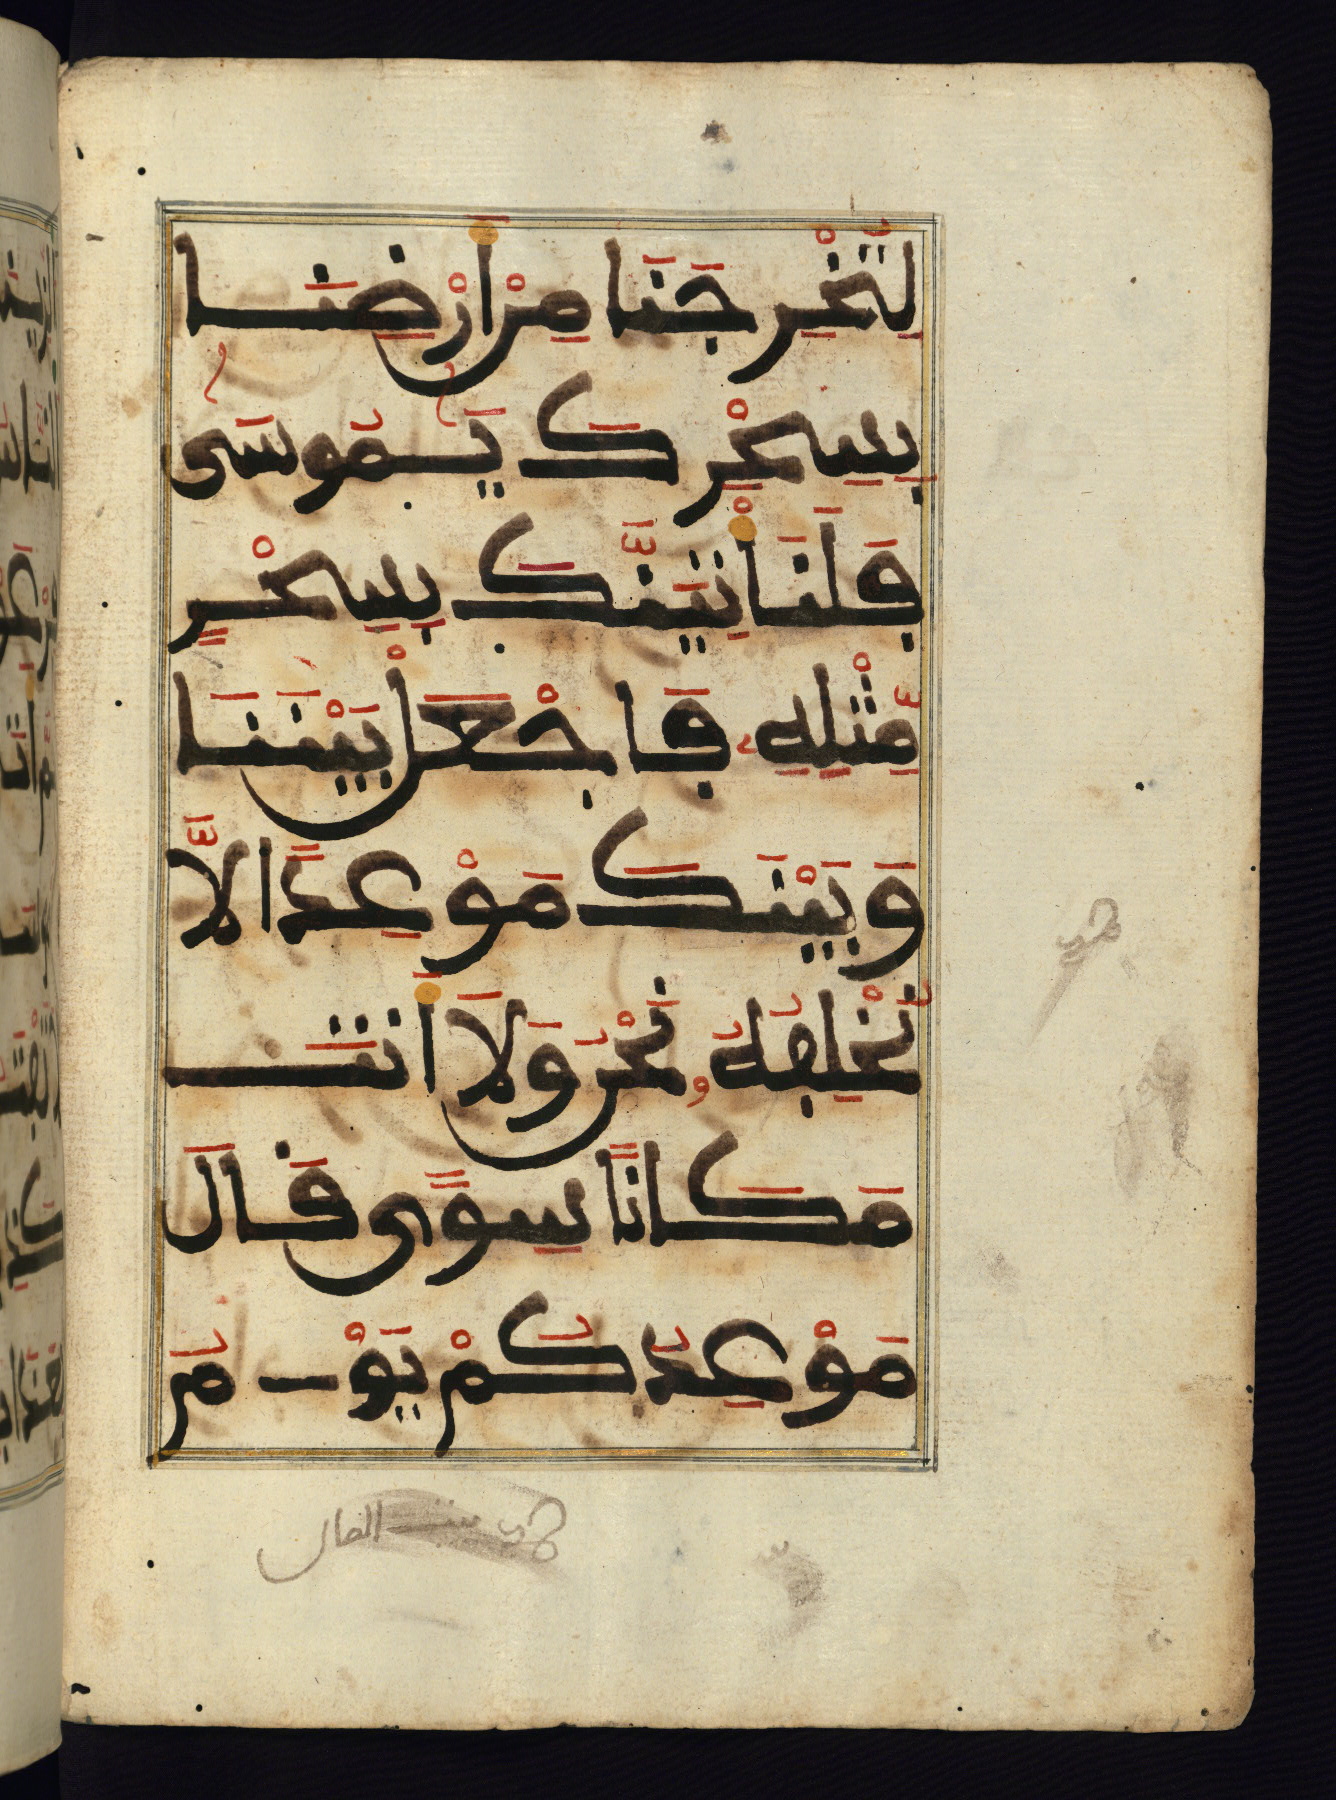 لِتُخْرِجَنَا مِنْ أَرْضِنَا
بِسِحْرِكَ يَٰمُوسَىٰ
فَلَنَأْتِيَنَّكَ بِسِحْرٍ
مِّثْلِهِۦ فَاجْعَلْ بَيْنَنَا
وَبَيْنَكَ مَوْعِدًا لَّا
نُخْلِفُهُۥ نَحْنُ وَلَا أَنتَ
مَكَانًا سِوًى قَالَ
مَوْعِدُكُمْ يَوْمُ